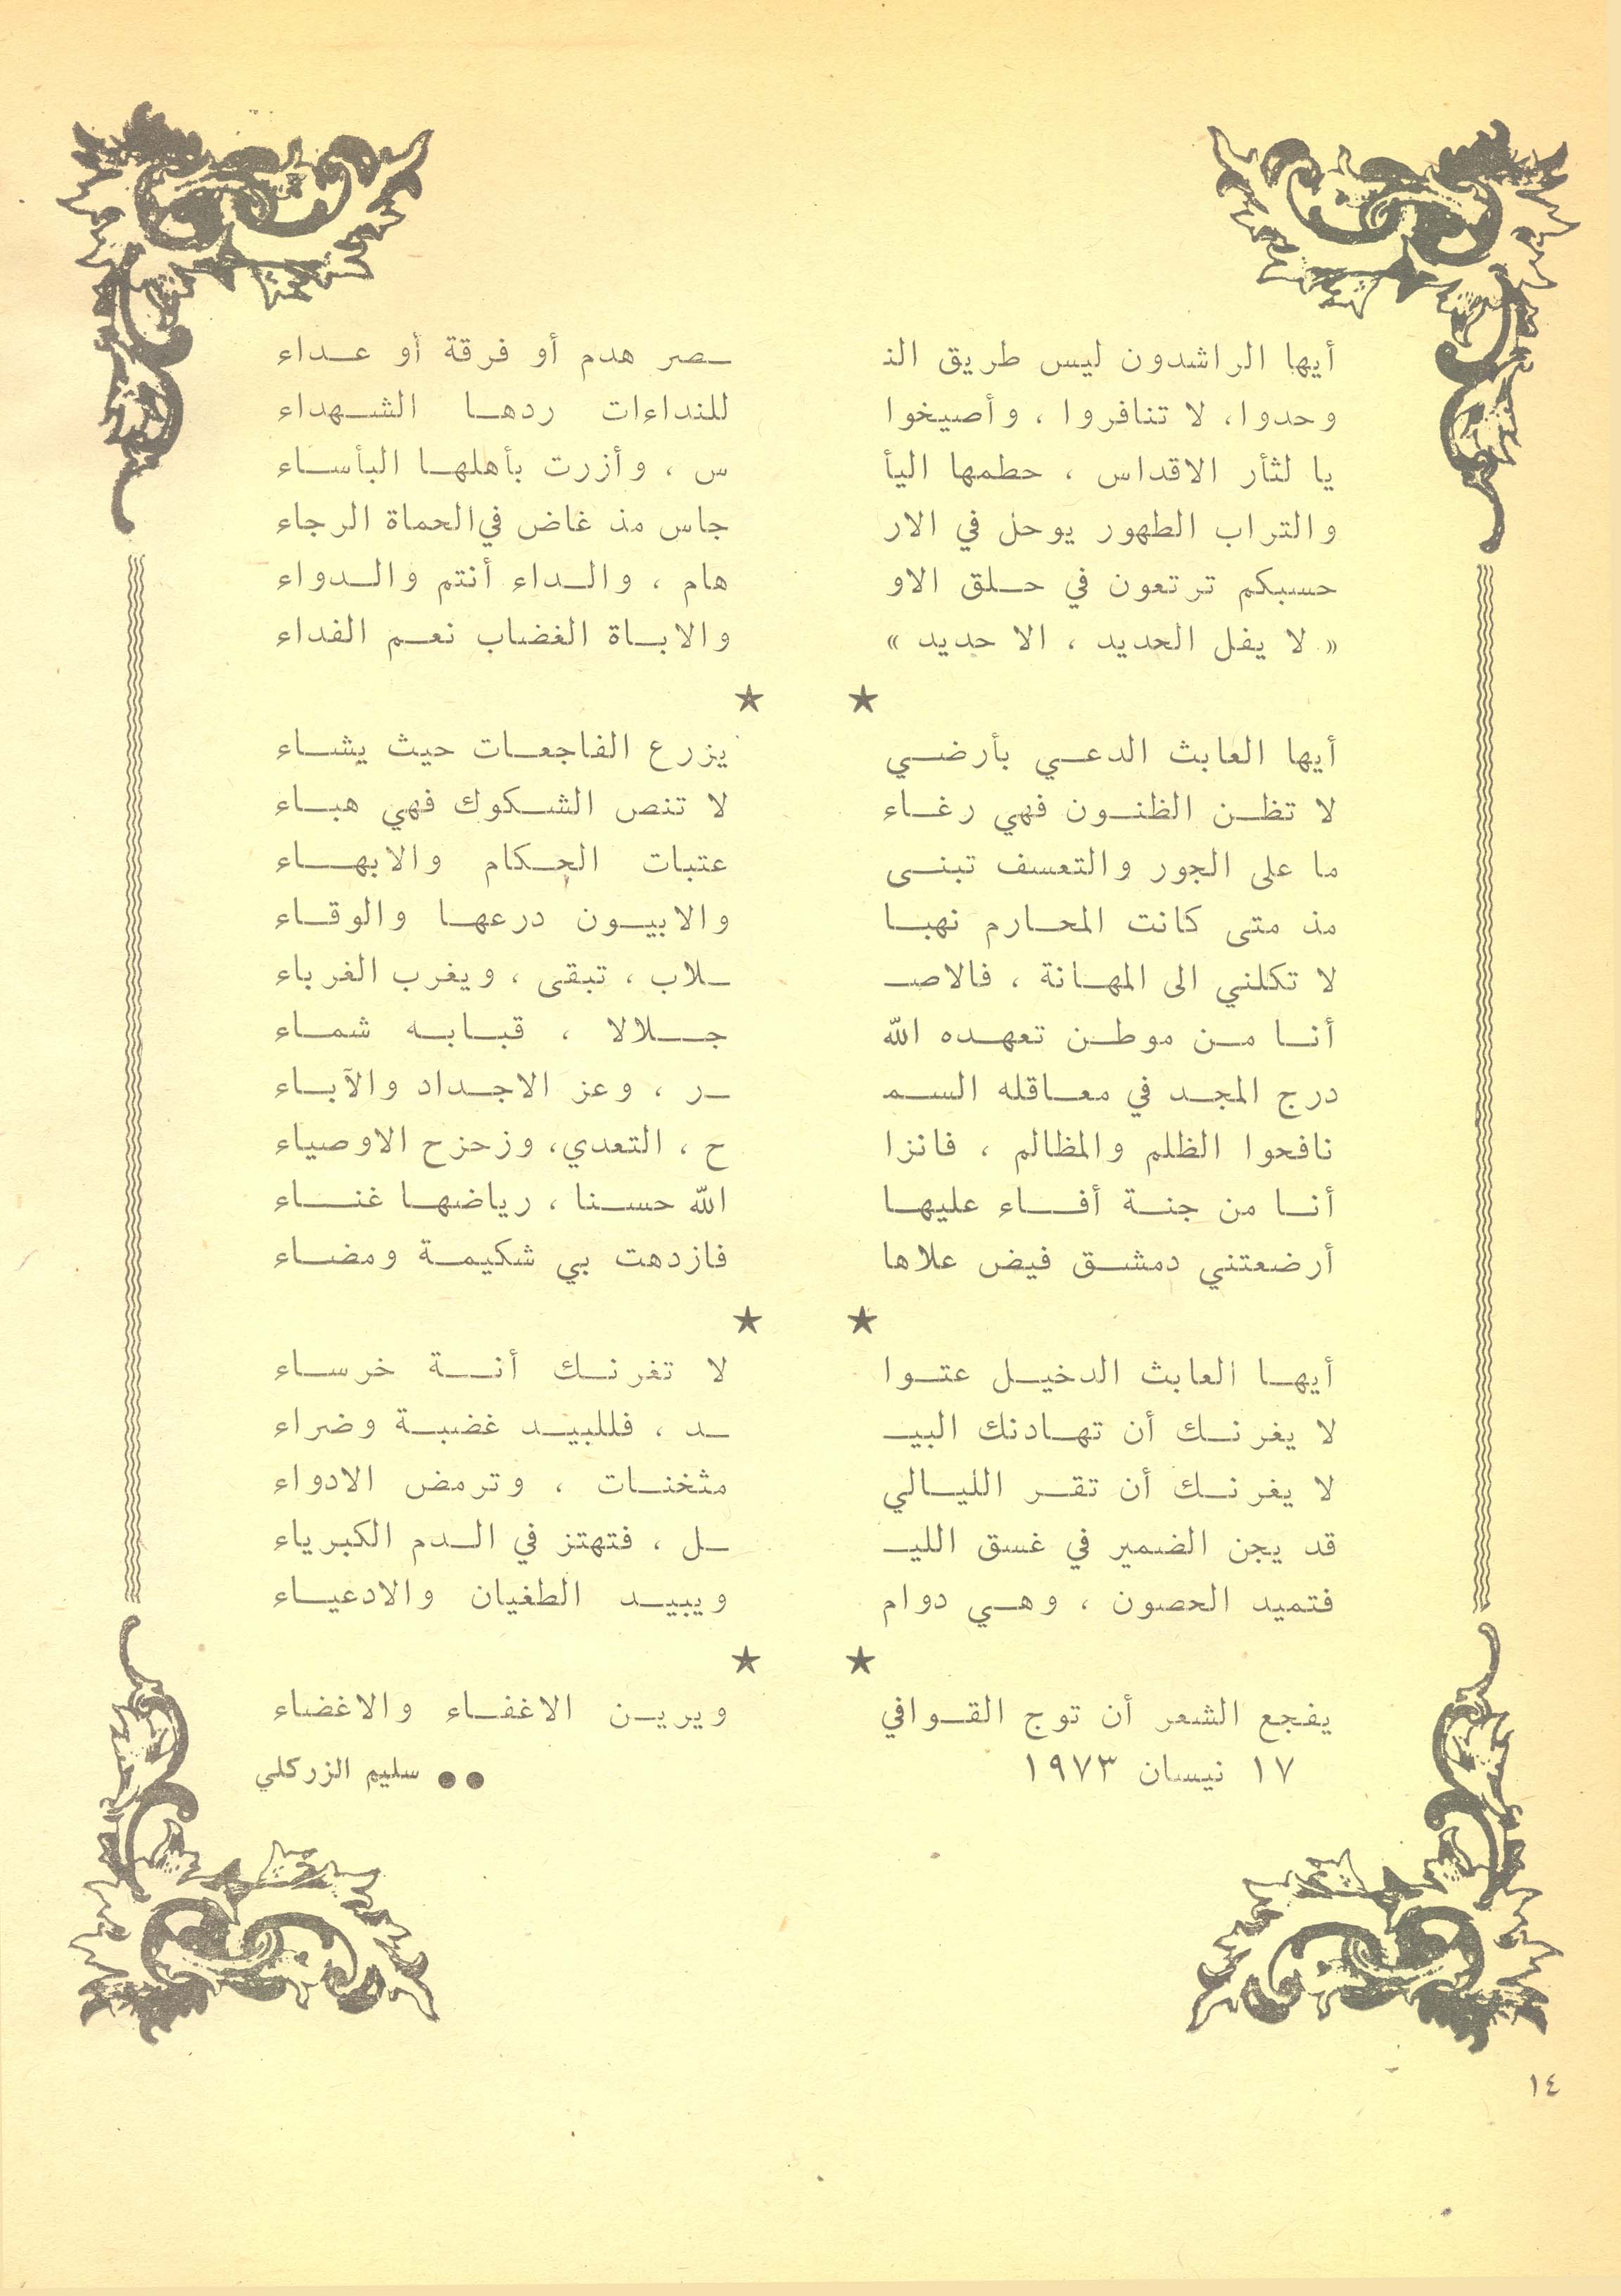 أيها الراشدون ليس طريق النـ ـصر هدم أو فرقة أو عـداء
وحدوا، لا تنافروا ، وأصيخوا للنداءات ردهـا الشـهداء
يا لثأر الاقداس ، حطمها اليأ س ، وأزرت بأهلهـا البأسـاء
والتراب الطهور يوحل في الار جاس مذ غاض في الحماة الرجاء
حسبكم ترتعون في حـلق الاو هام ، والـداء أنتم والـدواء
« لا يفل الحديد ، الا حديد » والابـاة الغضاب نعـم الفداء
★ ★
أيها العابث الدعـي بأرضـي يزرع الفاجعـات حيث يشـاء
لا تظـن الظنـون فهي رغـاء لا تنص الشـكوك فهي هبـاء
ما على الجور والتعسف تبنـى عتبات الحـكام والابهـاء
مذ متى كانت المحـارم نهبـا والابيـون درعهـا والوقـاء
لا تكلني الى المهـانة ، فالاصـ ـلاب ، تبقى ، ويغرب الغرباء
أنـا مـن موطـن تعهـده الله جـلالا ، قبـابـه شمـاء
درج المجـد في معـاقله السـمـ ـر ، وعز الاجـداد والآبـاء
نافحوا الظلم والمظالم ، فانزا ح ، التعدي، وزحزح الاوصياء
أنـا من جنـة أفـاء عليهـا الله حسـنا ، رياضهـا غنـاء
أرضعتني دمشـق فيض علاها فازدهت بي شكيمـة ومضـاء
★ ★
أيهـا العابث الدخيـل عتـوا لا تغرنـك أنـة خرسـاء
لا يغرنـك أن تهـادنك البيـ ـد ، فللبيـد غضبـة وضراء
لا يغرنـك أن تقـر الليـالي مثخنـات ، وترمض الادواء
قد يجن الضمير في غسق الليـ ـل ، فتهتز في الـدم الكبرياء
فتميد الحصون ، وهـي دوام ويبيـد الطغيان والادعيـاء
★ ★
يفجع الشعر أن توج القـوافي ويريـن الاغفـاء والاغضاء
١٧ نيسان ١٩٧٣ ●● سليم الزركلي
١٤